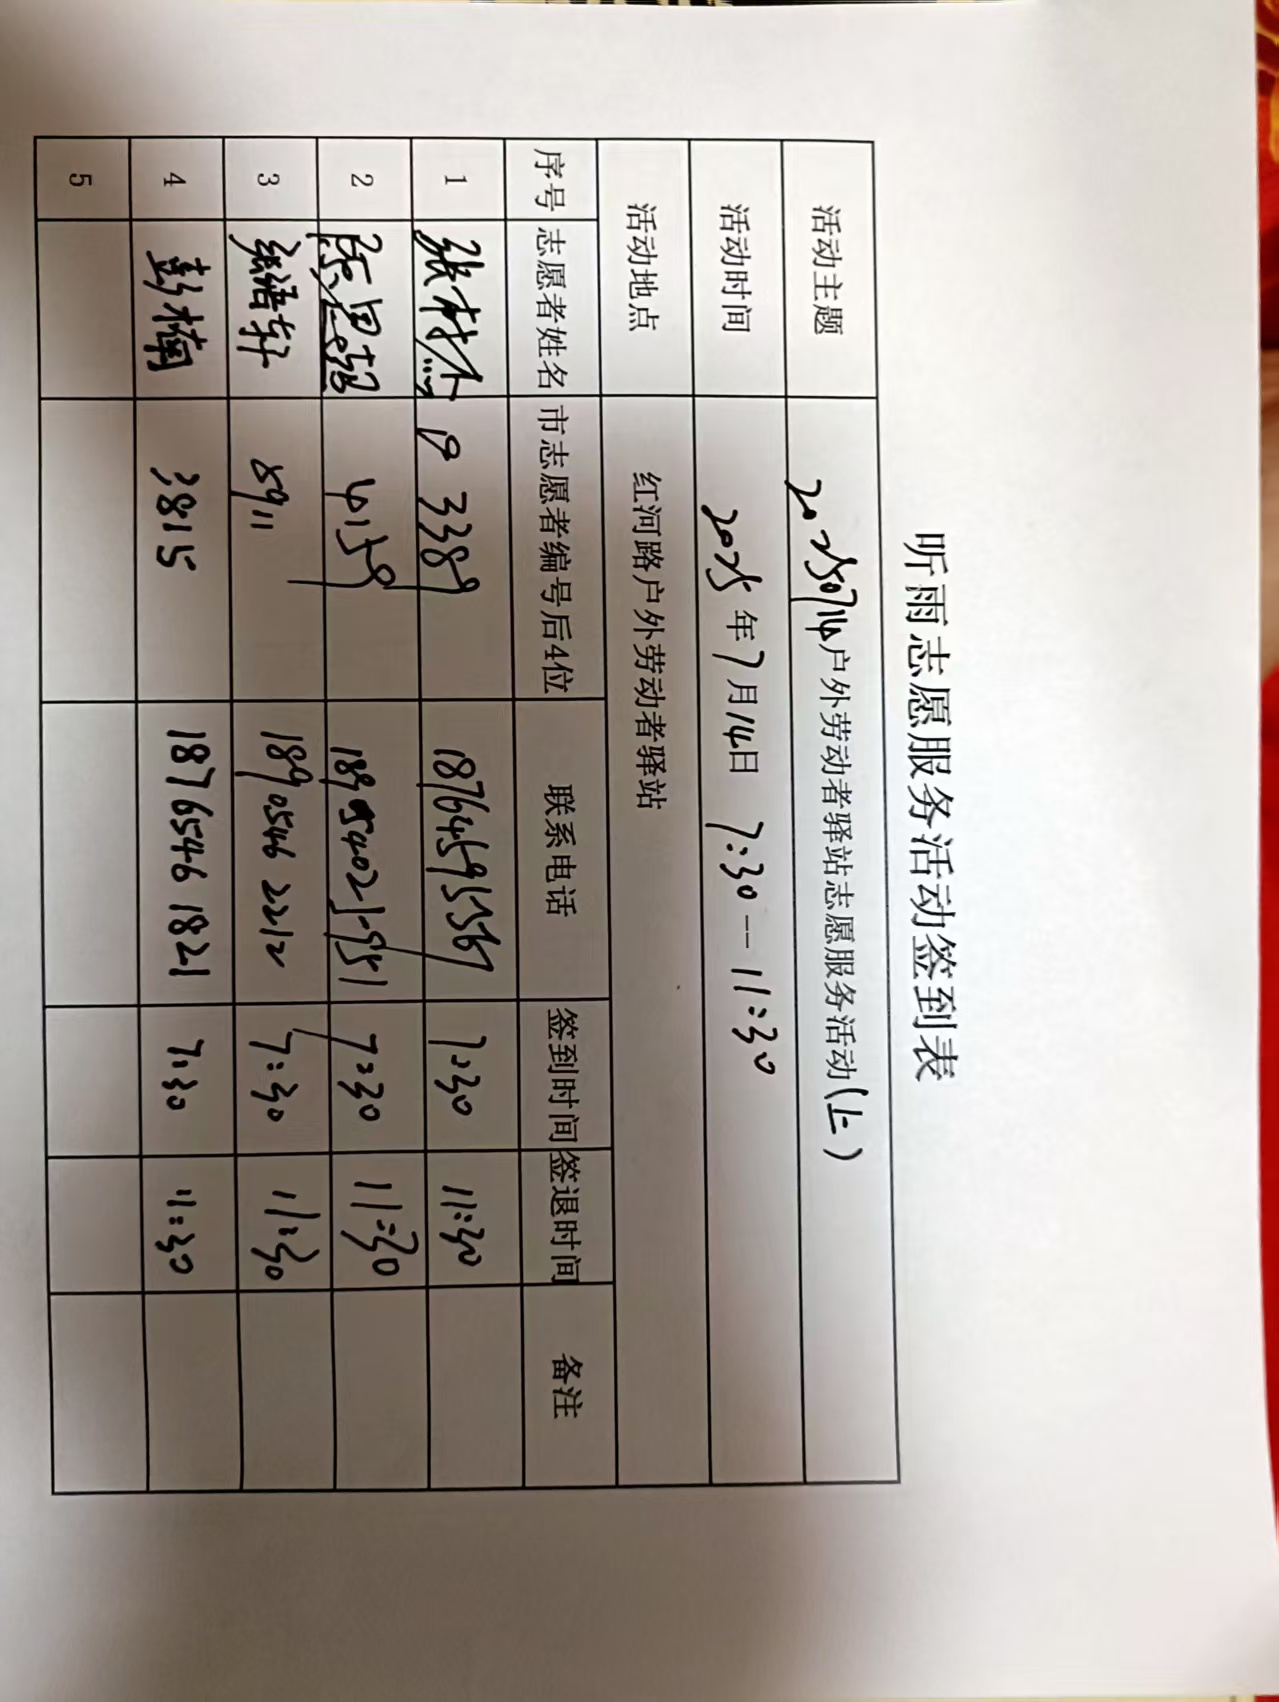 听雨志愿服务活动签到表
活动主题 20250714户外劳动者驿站志愿服务活动(上)
活动时间 2025年7月14日 7:30--11:30
活动地点 红河路户外劳动者驿站
序号 志愿者姓名 市志愿者编号后4位 联系电话 签到时间 签退时间 备注
1 张树杰 3389 7:30 11:30
2 4159 7:30 11:30
3 浩轩 8911 189 0546 2212 7:30 11:30
4 彭楠 3815 187 6546 1821 7:30 11:30
5